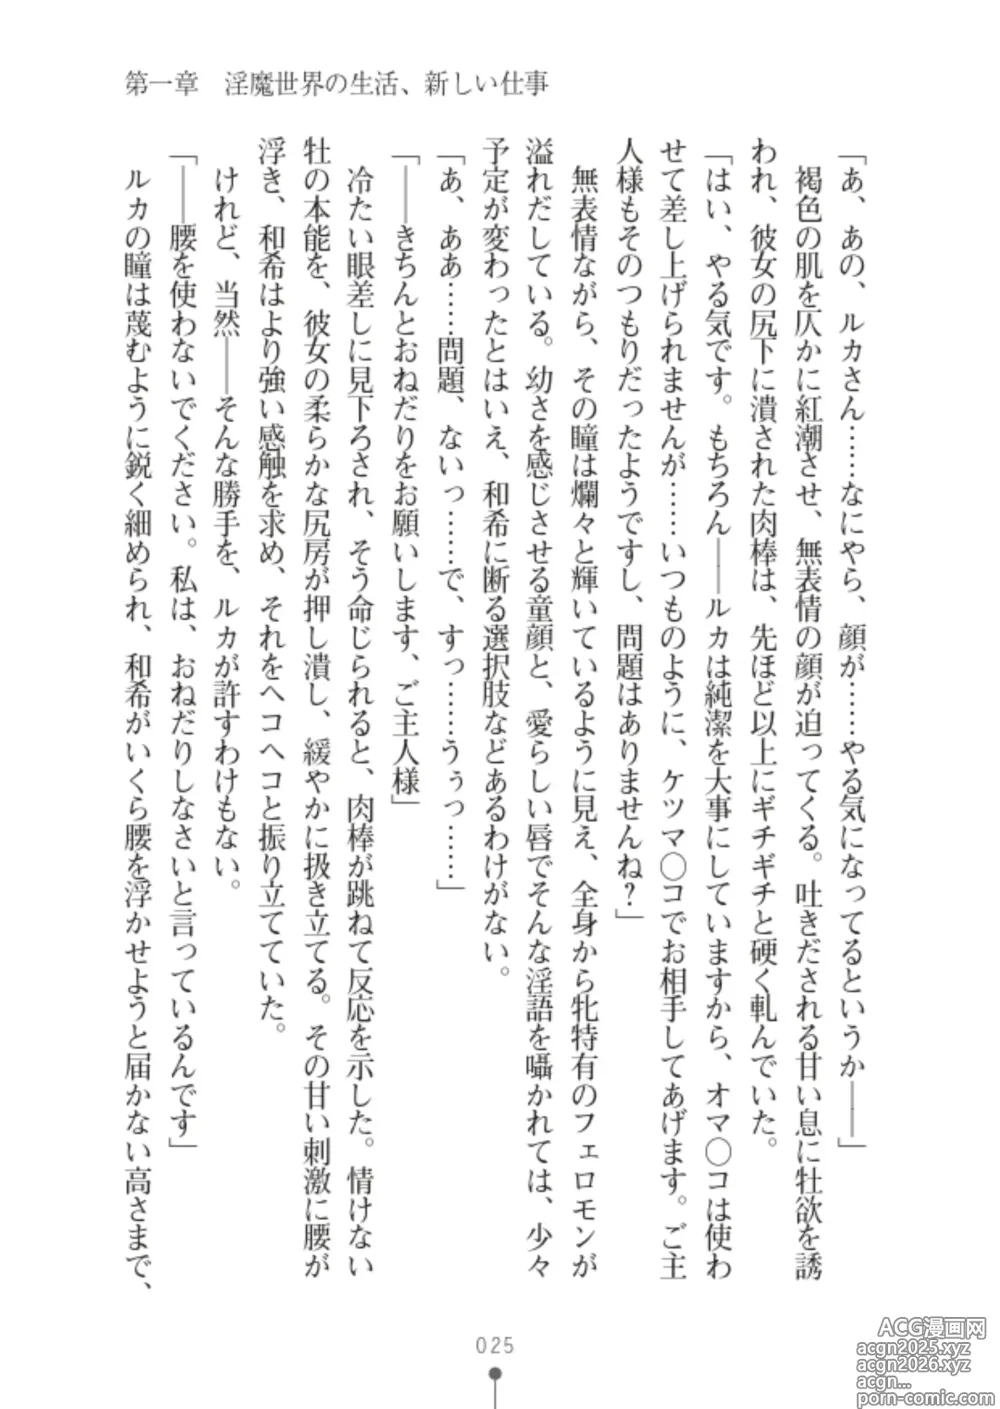 第一章　淫魔世界の生活、新しい仕事
「あ、あの、ルカさん……なにやら、顔が……やる気になってるというか――」
褐色の肌を仄かに紅潮させ、無表情の顔が迫ってくる。吐きだされる甘い息に牡欲を誘
われ、彼女の尻下に潰された肉棒は、先ほど以上にギチギチと硬く軋んでいた。
「はい、やる気です。もちろん――ルカは純潔を大事にしていますから、オマ〇コは使わ
せて差し上げられませんが……いつものように、ケツマ〇コでお相手してあげます。ご主
人様もそのつもりだったようですし、問題はありませんね？」
無表情ながら、その瞳は爛々と輝いているように見え、全身から牝特有のフェロモンが
溢れだしている。幼さを感じさせる童顔と、愛らしい唇でそんな淫語を囁かれては、少々
予定が変わったとはいえ、和希に断る選択肢などあるわけがない。
「あ、ああ……問題、ないっ……で、すっ……うぅっ……」
「――きちんとおねだりをお願いします、ご主人様」
冷たい眼差しに見下ろされ、そう命じられると、肉棒が跳ねて反応を示した。情けない
牡の本能を、彼女の柔らかな尻房が押し潰し、緩やかに扱き立てる。その甘い刺激に腰が
浮き、和希はより強い感触を求め、それをヘコヘコと振り立てていた。
けれど、当然――そんな勝手を、ルカが許すわけもない。
「――腰を使わないでください。私は、おねだりしなさいと言っているんです」
ルカの瞳は蔑むように鋭く細められ、和希がいくら腰を浮かせようと届かない高さまで、
025
ACG漫画网
acgn2025.xyz
acgn2026.xyz
acgn...
porn-comic.com